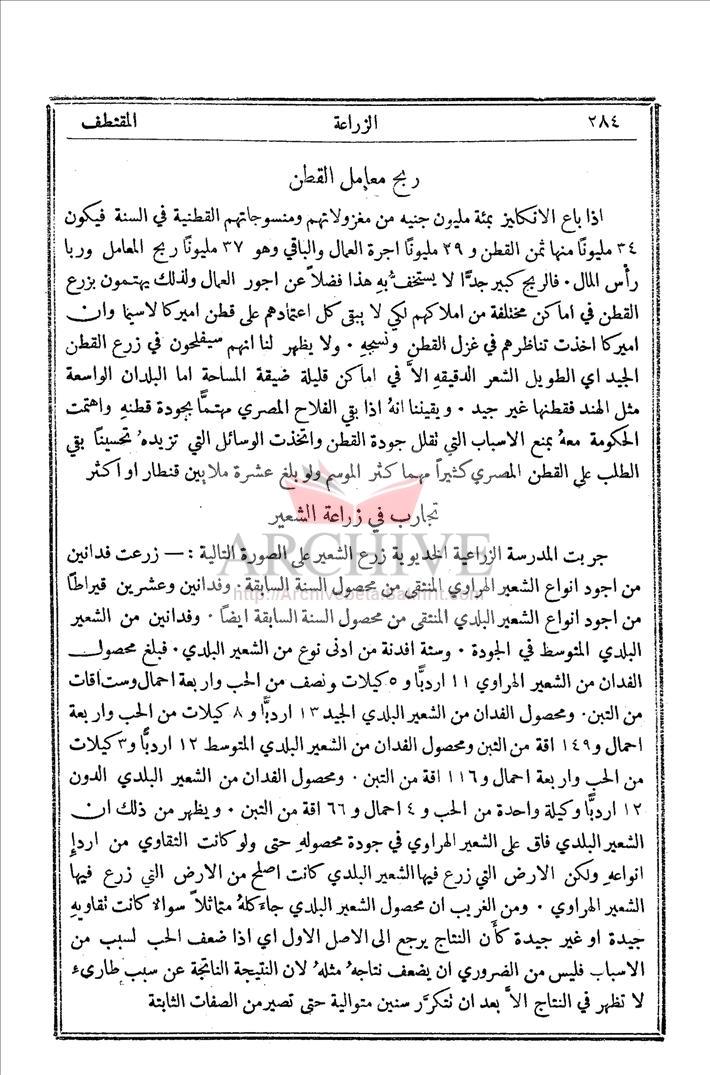 ٢٨٤ الزراعة المقتطف
ربح معامل القطن
اذا باع الانكليز بمئة مليون جنيه من مغزولاتهم ومنسوجاتهم القطنية في السنة فيكون
٣٤ مليونًا منها ثمن القطن و ٢٩ مليونًا اجرة العمال والباقي وهو ٣٧ مليونًا ربح المعامل وربا
رأس المال . فالربح كبير جدًّا لا يستخفُّ بهِ هذا فضلاً عن اجور العمال ولذلك يهتمون بزرع
القطن في اماكن مختلفة من املاكهم لكي لا يبقى كل اعتمادهم على قطن اميركا لاسيما وان
اميركا اخذت تناظرهم في غزل القطن ونسجهِ . ولا يظهر لنا انهم سيفلحون في زرع القطن
الجيد اي الطويل الشعر الدقيقه الاَّ في اماكن قليلة ضيقة المساحة اما البلدان الواسعة
مثل الهند فقطنها غير جيد . ويقيننا انهُ اذا بقي الفلاح المصري مهتمًّا بجودة قطنهِ واهتمت
الحكومة معهُ بمنع الاسباب التي تقلل جودة القطن واتخذت الوسائل التي تزيدهُ تحسينًا بقي
الطلب على القطن المصري كثيرًا مهما كثر الموسم ولو بلغ عشرة ملايين قنطار او اكثر
تجارب في زراعة الشعير
جربت المدرسة الزراعية الخديوية زرع الشعير على الصورة التالية : — زرعت فدانين
من اجود انواع الشعير الهراوي المنتقى من محصول السنة السابقة . وفدانين وعشرين قيراطًا
من اجود انواع الشعير البلدي المنتقى من محصول السنة السابقة ايضًا . وفدانين من الشعير
البلدي المتوسط في الجودة . وستة افدنة من ادنى نوع من الشعير البلدي . فبلغ محصول
الفدان من الشعير الهراوي ١١ اردبًّا و ٥ كيلات ونصف من الحب واربعة احمال وست اقات
من التبن . ومحصول الفدان من الشعير البلدي الجيد ١٣ اردبًّا و ٨ كيلات من الحب واربعة
احمال و١٤٩ اقة من التبن ومحصول الفدان من الشعير البلدي المتوسط ١٢ اردبًّا و٣ كيلات
من الحب واربعة احمال و١١٦ اقة من التبن . ومحصول الفدان من الشعير البلدي الدون
١٢ اردبًّا وكيلة واحدة من الحب و ٤ احمال و ٦٦ اقة من التبن . ويظهر من ذلك ان
الشعير البلدي فاق على الشعير الهراوي في جودة محصولهِ حتى ولو كانت التقاوي من اردإ
انواعهِ ولكن الارض التي زرع فيها الشعير البلدي كانت اصلح من الارض التي زرع فيها
الشعير الهراوي . ومن الغريب ان محصول الشعير البلدي جاءَ كلهُ متماثلاً سواءٌ كانت تقاويهِ
جيدة او غير جيدة كأَن النتاج يرجع الى الاصل الاول اي اذا ضعف الحب لسبب من
الاسباب فليس من الضروري ان يضعف نتاجهُ مثلهُ لان النتيجة الناتجة عن سبب طارىء
لا تظهر في النتاج الاَّ بعد ان تتكرَّر سنين متوالية حتى تصير من الصفات الثابتة
ARCHIVE